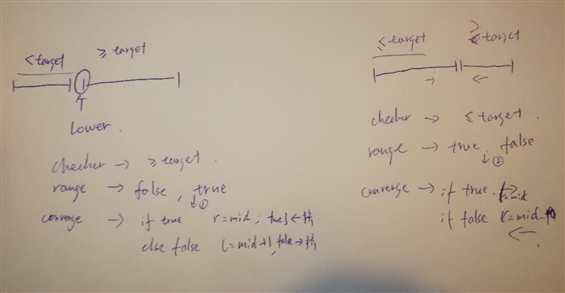 < target
≥ target
Lower.
checker → ≥ target.
range → false, true
①
converge → if true r=mid;
else false l=mid+1,
≤ target
≥
target
→ ←
checker → ≤ target
range → true, false
①
converge → if true.
if false r=mid-
←